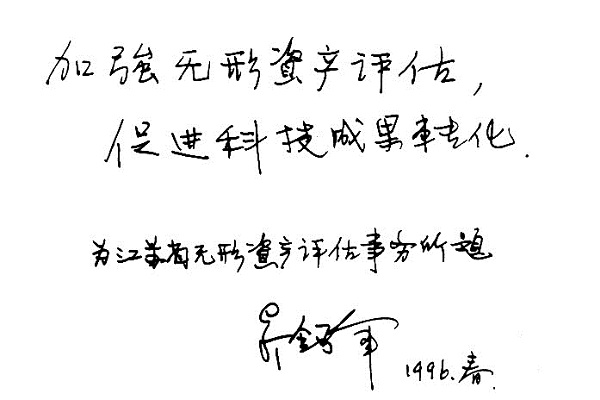 加強无形資产评估，
促进科技成果转化.
为江苏省无形資产评估事务所题
吴锡军 1996.春.